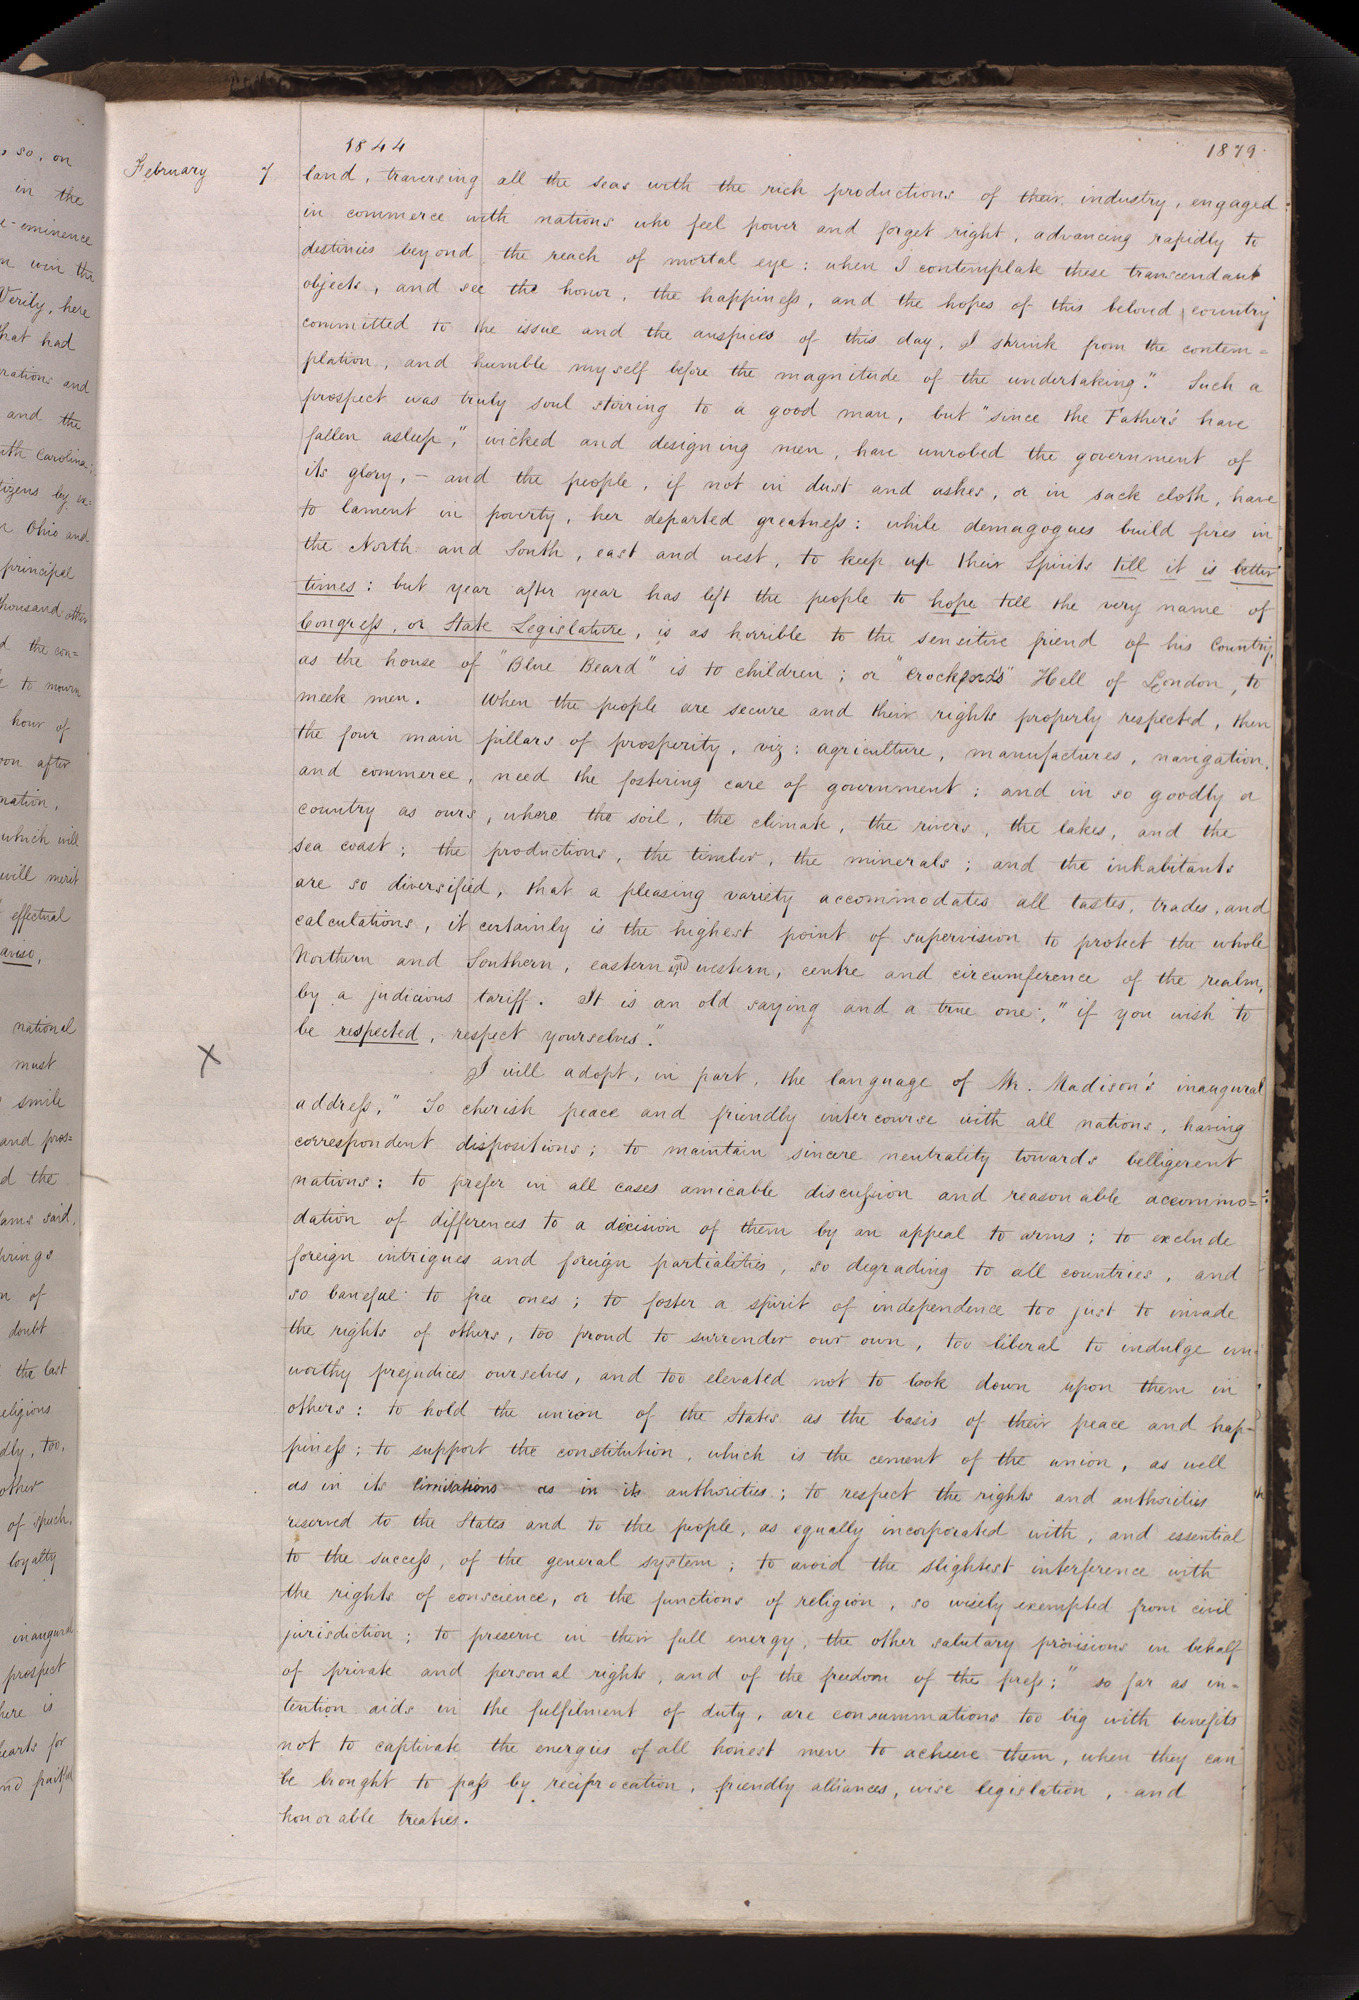 1844
1879
February 7
land, traversing all the seas with the rich productions of their industry, engaged
in commerce with nations who feel power and forget right, advancing rapidly to
destinies beyond the reach of mortal eye; when I contemplate these transcendant
objects, and see the honor, the happiness, and the hopes of this beloved country
committed to the issue and the auspices of this day, I shrink from the contem=
plation, and humble myself before the magnitude of the undertaking." Such a
prospect was truly soul stirring to a good man, but "since the Father's have
fallen asleep," wicked and designing men, have unrobed the government of
its glory, – and the people, if not in dust and ashes, or in sack cloth, have
to lament in poverty, her departed greatness: while demagogues build fires in
the North and South, east and west, to keep up their spirits till it is better
times: but year after year has left the people to hope till the very name of
Congress, or State Legislature, is as horrible to the sensitive friend of his Country,
as the house of "Blue Beard" is to children; or "Crockford's" Hell of London, to
meek men. When the people are secure and their rights properly respected, then
the four main pillars of prosperity, viz: agriculture, manufactures, navigation,
and commerce, need the fostering care of government; and in so goodly a
country as ours, where the soil, the climate, the rivers, the lakes, and the
sea coast; the productions, the timber, the minerals; and the inhabitants
are so diversified, that a pleasing variety accommodates all tastes, trades, and
calculations, it certainly is the highest point of supervision to protect the whole
Northern and Southern, eastern and western, centre and circumference of the realm,
by a judicious tariff. It is an old saying and a true one, "if you wish to
be respected, respect yourselves."
X
I will adopt, in part, the language of Mr. Madison's inaugural
address, "To cherish peace and friendly intercourse with all nations, having
correspondent dispositions; to maintain sincere neutrality towards belligerent
nations; to prefer in all cases amicable discussion and reasonable accommo=
dation of differences to a decision of them by an appeal to arms; to exclude
foreign intrigues and foreign partialities, so degrading to all countries, and
so baneful to free ones; to foster a spirit of independence too just to invade
the rights of others, too proud to surrender our own, too liberal to indulge un=
worthy prejudices ourselves, and too elevated not to look down upon them in
others; to hold the union of the States as the basis of their peace and hap=
piness; to support the constitution, which is the cement of the union, as well
as in its limitations as in its authorities; to respect the rights and authorities
reserved to the States and to the people, as equally incorporated with, and essential
to the success, of the general system; to avoid the slightest interference with
the rights of conscience, or the functions of religion, so wisely exempted from civil
jurisdiction; to preserve in their full energy, the other salutary provisions in behalf
of private and personal rights, and of the freedom of the press;" so far as in=
tention aids in the fulfilment of duty, are consummations too big with benefits
not to captivate the energies of all honest men to achieve them, when they can
be brought to pass by reciprocation, friendly alliances, wise legislation, and
honorable treaties.